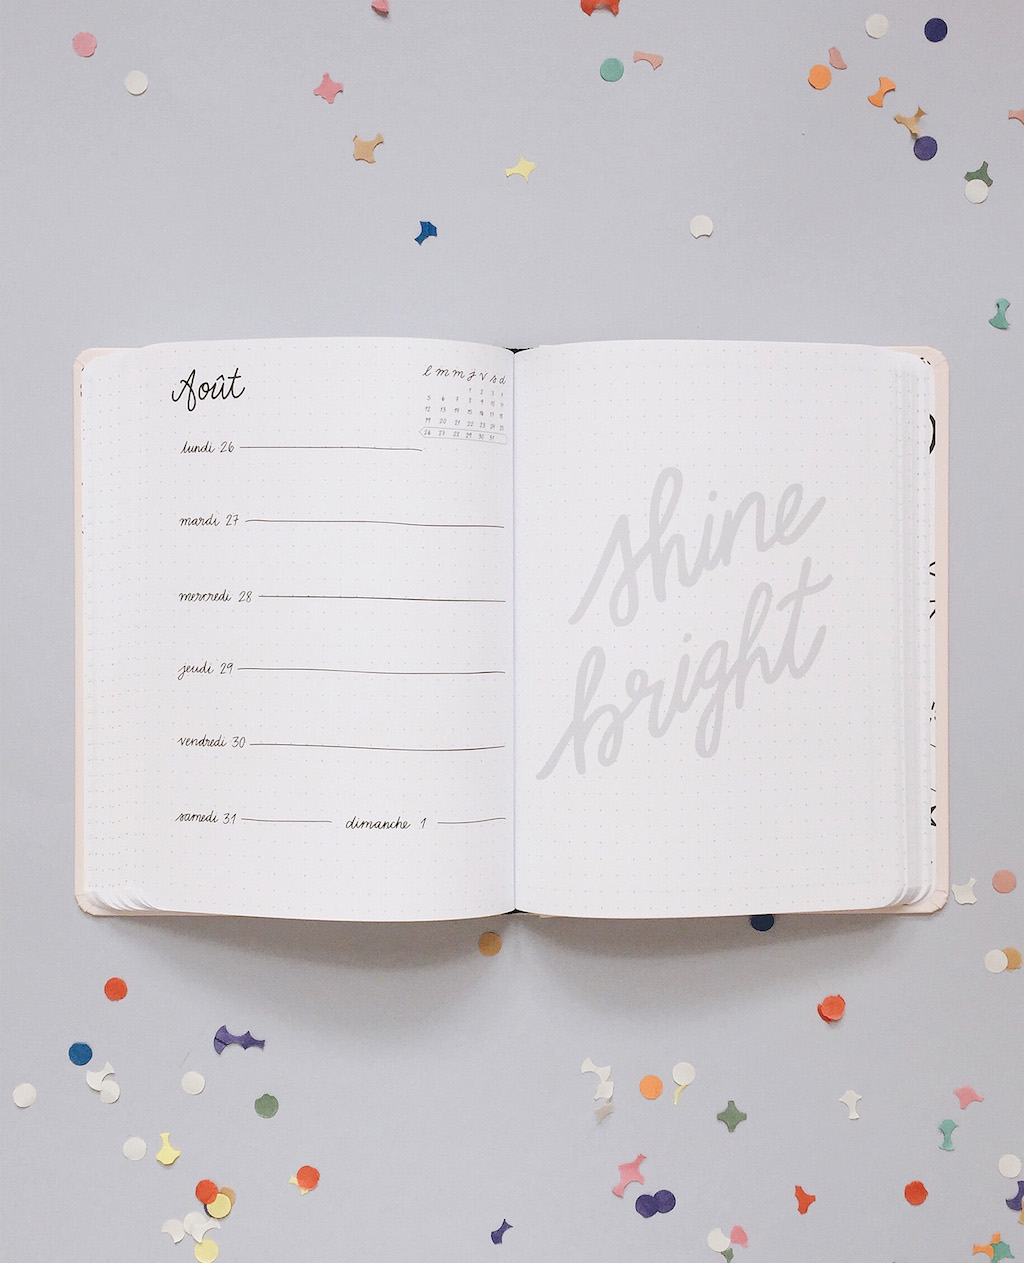 Août
l m m j v s d
1 2 3 4
5 6 7 8 9 10 11
12 13 14 15 16 17 18
19 20 21 22 23 24 25
26 27 28 29 30 31
lundi 26
mardi 27
mercredi 28
jeudi 29
vendredi 30
samedi 31 dimanche 1
shine
bright